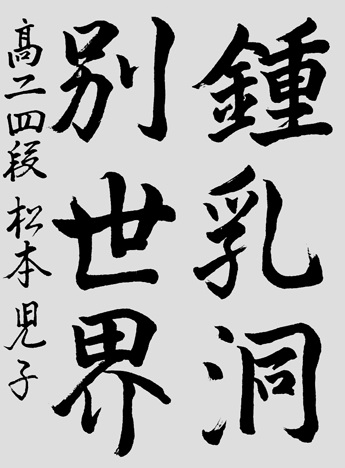 鍾乳洞
別世界
高二四段 松本児子